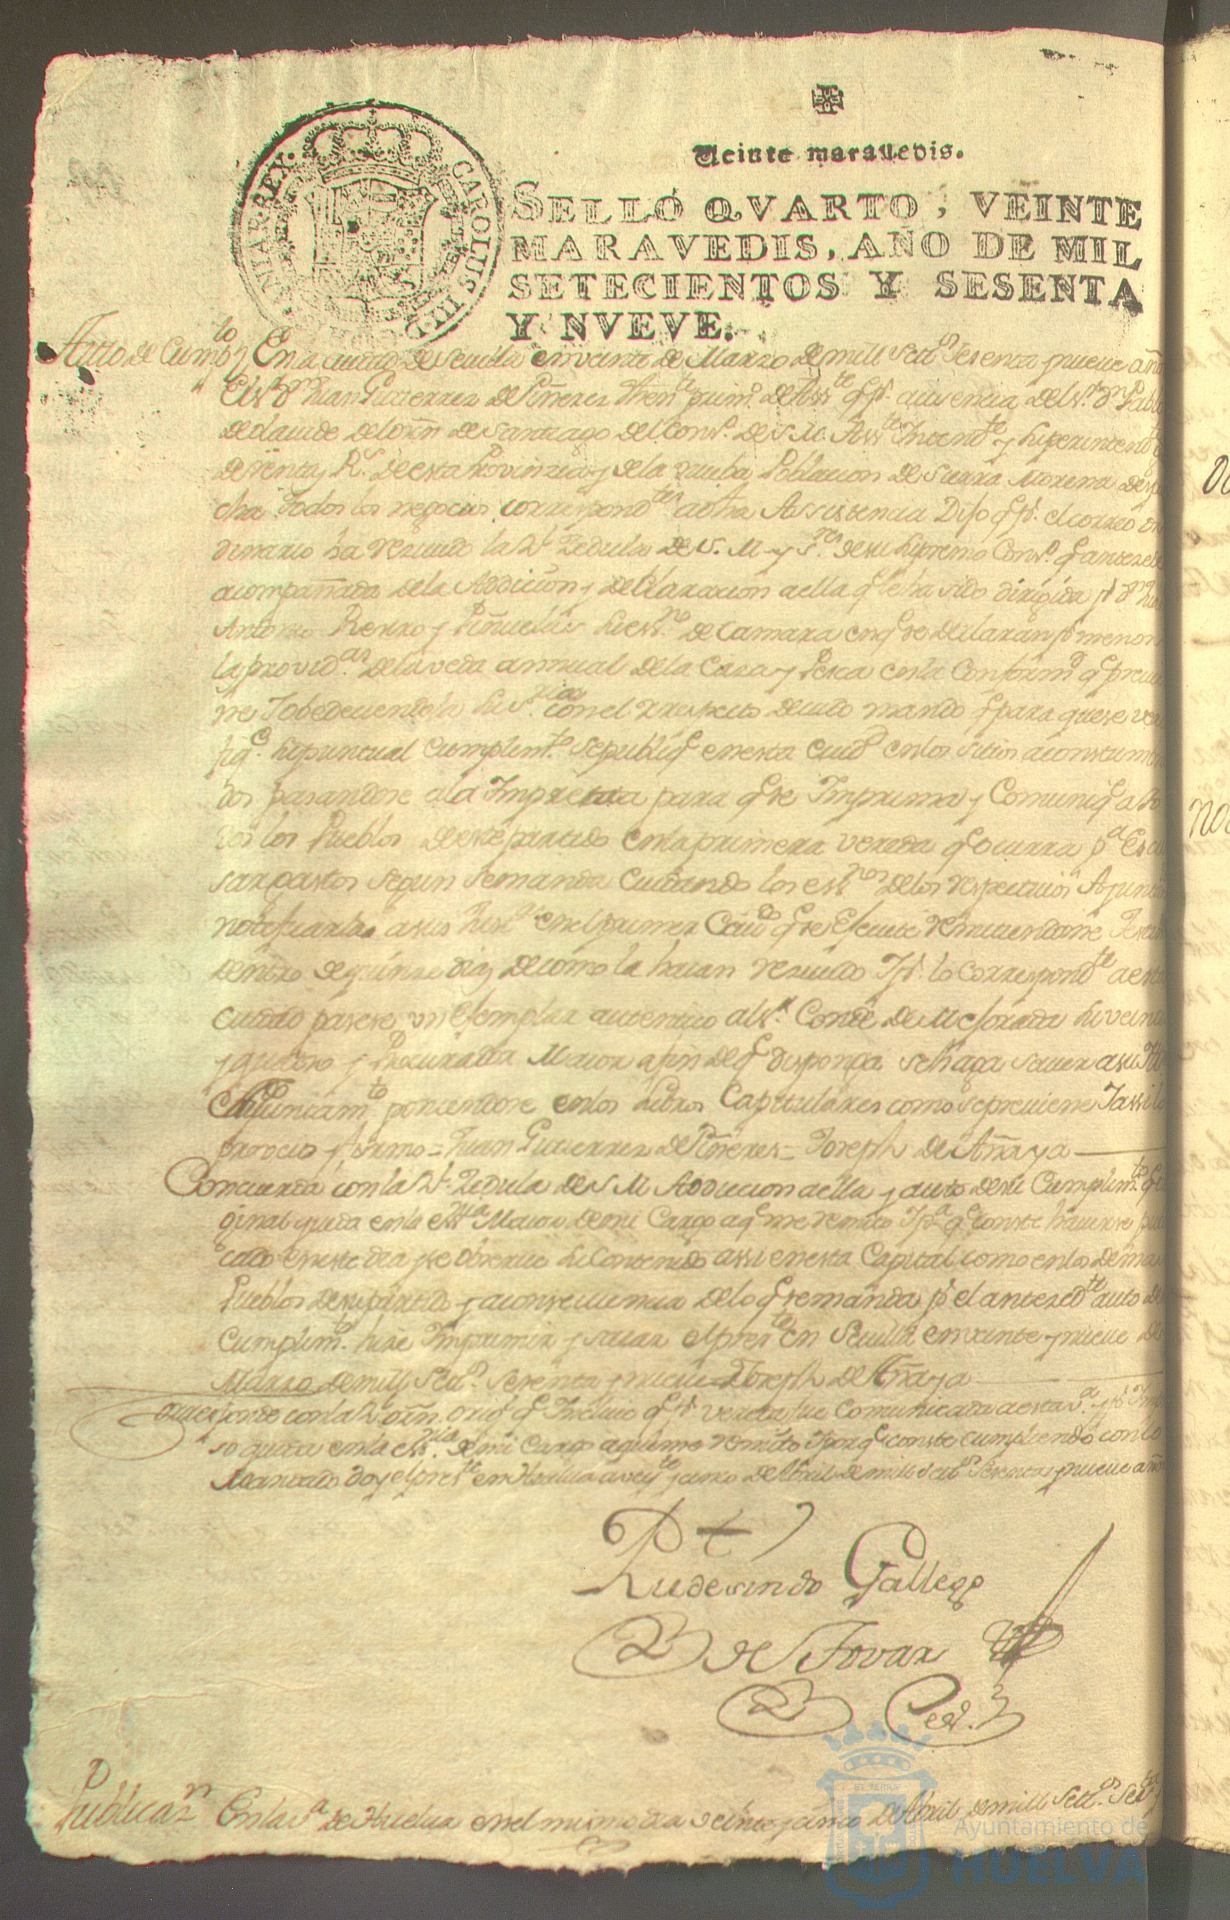 Veinte maravedis.
SELLO QVARTO, VEINTE
MARAVEDIS, AÑO DE MIL
SETECIENTOS Y SESENTA
Y NVEVE.
CAROLUS III D. HISPANIAR REX
Autto de Cumto En la ciudad de Sevilla en veinte de Marzo de mill Settos Sesenta y nueve años
El Sr Dn Juan Gutierrez de Piñeres Then.te prim.o de Ass.te q.e p.r ausencia del Sr Dn Pablo
de Olavide del orn de Santiago del Cons.o de S. M. Ass.te Intend.te y Superintend.te
de rentas R.s de esta Provinzia y de la nueba Poblacion de Sierra Morena despa
cha todos los negocios correspond.tes a dha Assistencia Dijo q.e p.r el correo or
dinario ha recivido la R.l Zedula de S. M. y S.res de su Supremo Cons.o q.e antecede
acompañada de la Addicion y declaracion a ella q.e le ha sido dirigida p.r Dn
Antonio Rexro y Piñuelas Su ess.no de Camara en q.e se declaran p.r menor
la provid.as de la veda annual de la Caza y Pesca en la Conform.d q.e previe
ne Y obedeciendola Su S.ria con el respecto devido mando q.e para que se veri
fiq.e su puntual Cumplim.to se publiq.e en esta Ciud.d en los sitios acostumbra
dos pasandose a la Imprenta para q.e se Imprima y Comuniq.e a to
dos los Pueblos de este partido en la primera vereda q.e ocurra p.a Escu
sar gastos segun se manda Cuidando los ess.nos de los respectivos Ayunta
notificarlas a sus Just.as en el primer Cavdo q.e se Ejecute remitiendome Testim
dentro de quinze dias de como la haian recivido Y p.r lo correspond.te a esta
ciudad pasese un Ejemplar autentico al Sr Conde de Mejorada Su veinte
y quatro y Procurador Maior a fin de q.e disponga se haga saver a su
Ayuntam.to poniendose en los Libros Capitulares como se previene Y assi lo
proveio y firmo = Juan Gutierrez de Piñeres = Joseph de Añaya
Concuerda con la R.l Zedula de S M Addicion a ella y auto de su Cumplim.to q.e
ginal queda en la ess.nia Maior de mi Cargo a q.e me remito Y p.a q.e conste haverse publi
cado en este dia y se observe su Contenido assi en esta Capital como en los demas
Pueblos de su partido y a consecuencia de lo q.e se manda p.r el anteced.te auto de
Cumplim.to hize Imprimir y sacar el pres.te en Sevilla en veinte y nueve de
Marzo de mill Set.os Sesenta y nueve Joseph de Añaya
Corresponde con la R.l orn. orig.l q.e Incluie q.e p.r vereda fue Comunicada a esta V.a y p.r Impre
so queda en la ess.nia de mi Cargo a q.e me remito Y porq.e conste cumpliendo con lo
Mandado doy el pres.te en Huelva a veinte y cinco de Abril de mill Set.os Sesenta y nueve años
Rudesindo Gallego
de Tovar
Publicaz.n En la V.a de Huelva en el mismo dia veinte y cinco de Abril de mill Sett.os
Ayuntamiento de
HUELVA